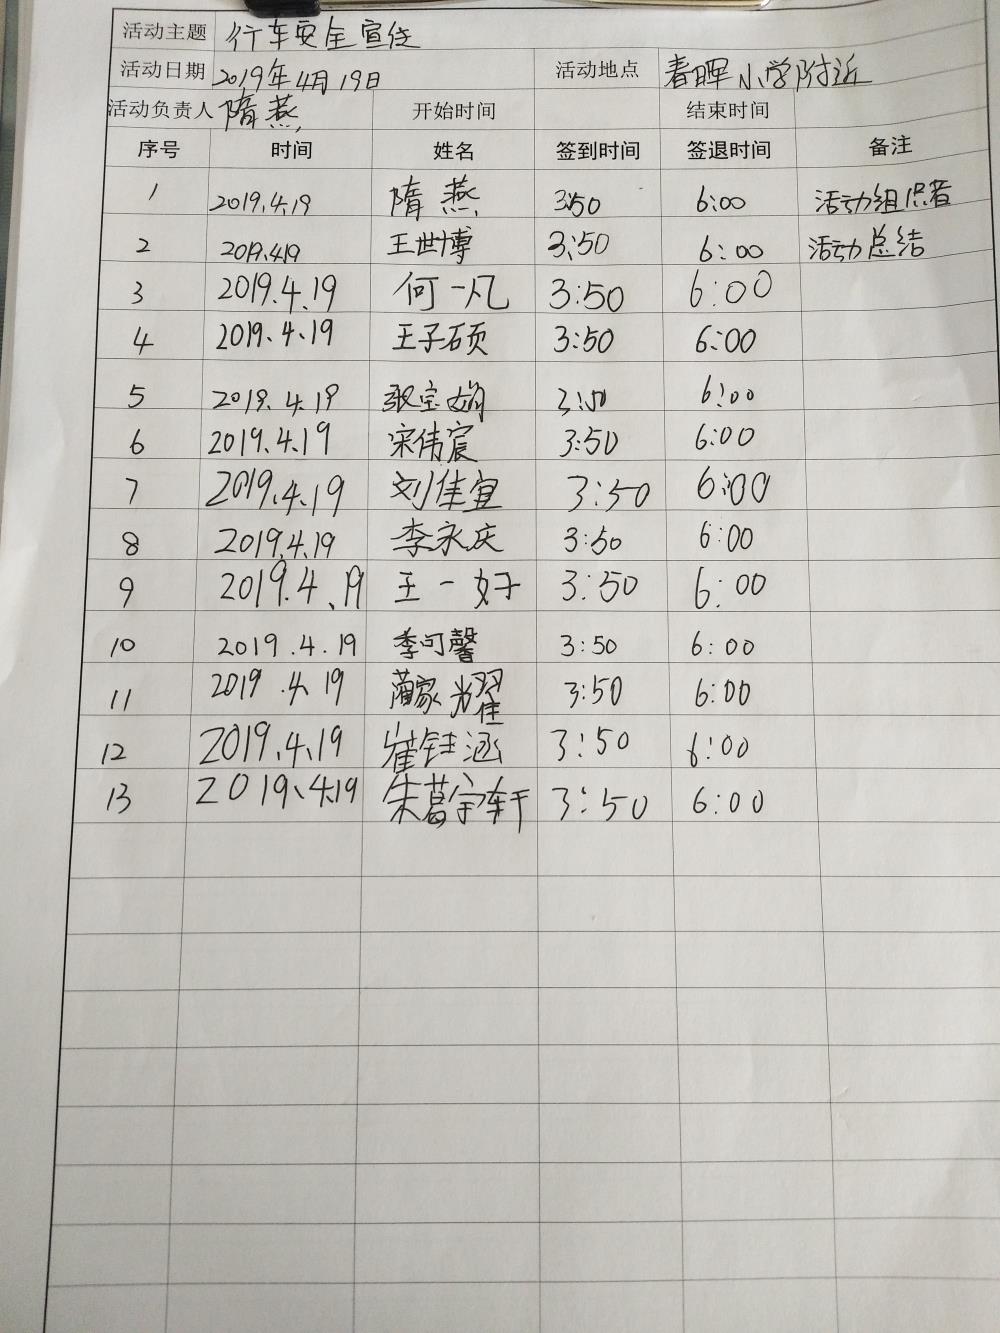 活动主题 行车安全宣传
活动日期 2019年4月19日 活动地点 春晖小学附近
活动负责人 隋燕 开始时间 结束时间
序号 时间 姓名 签到时间 签退时间 备注
1 2019.4.19 隋燕 3:50 6:00 活动组织者
2 2019.4.19 王世博 3:50 6:00 活动总结
3 2019.4.19 何一凡 3:50 6:00
4 2019.4.19 王子硕 3:50 6:00
5 2019.4.19 张宝娟 3:50 6:00
6 2019.4.19 宋伟宸 3:50 6:00
7 2019.4.19 刘佳宜 3:50 6:00
8 2019.4.19 李永庆 3:50 6:00
9 2019.4.19 王一好 3:50 6:00
10 2019.4.19 季可馨 3:50 6:00
11 2019.4.19 3:50 6:00
12 2019.4.19 崔钰涵 3:50 6:00
13 2019.4.19 朱葛宇轩 3:50 6:00